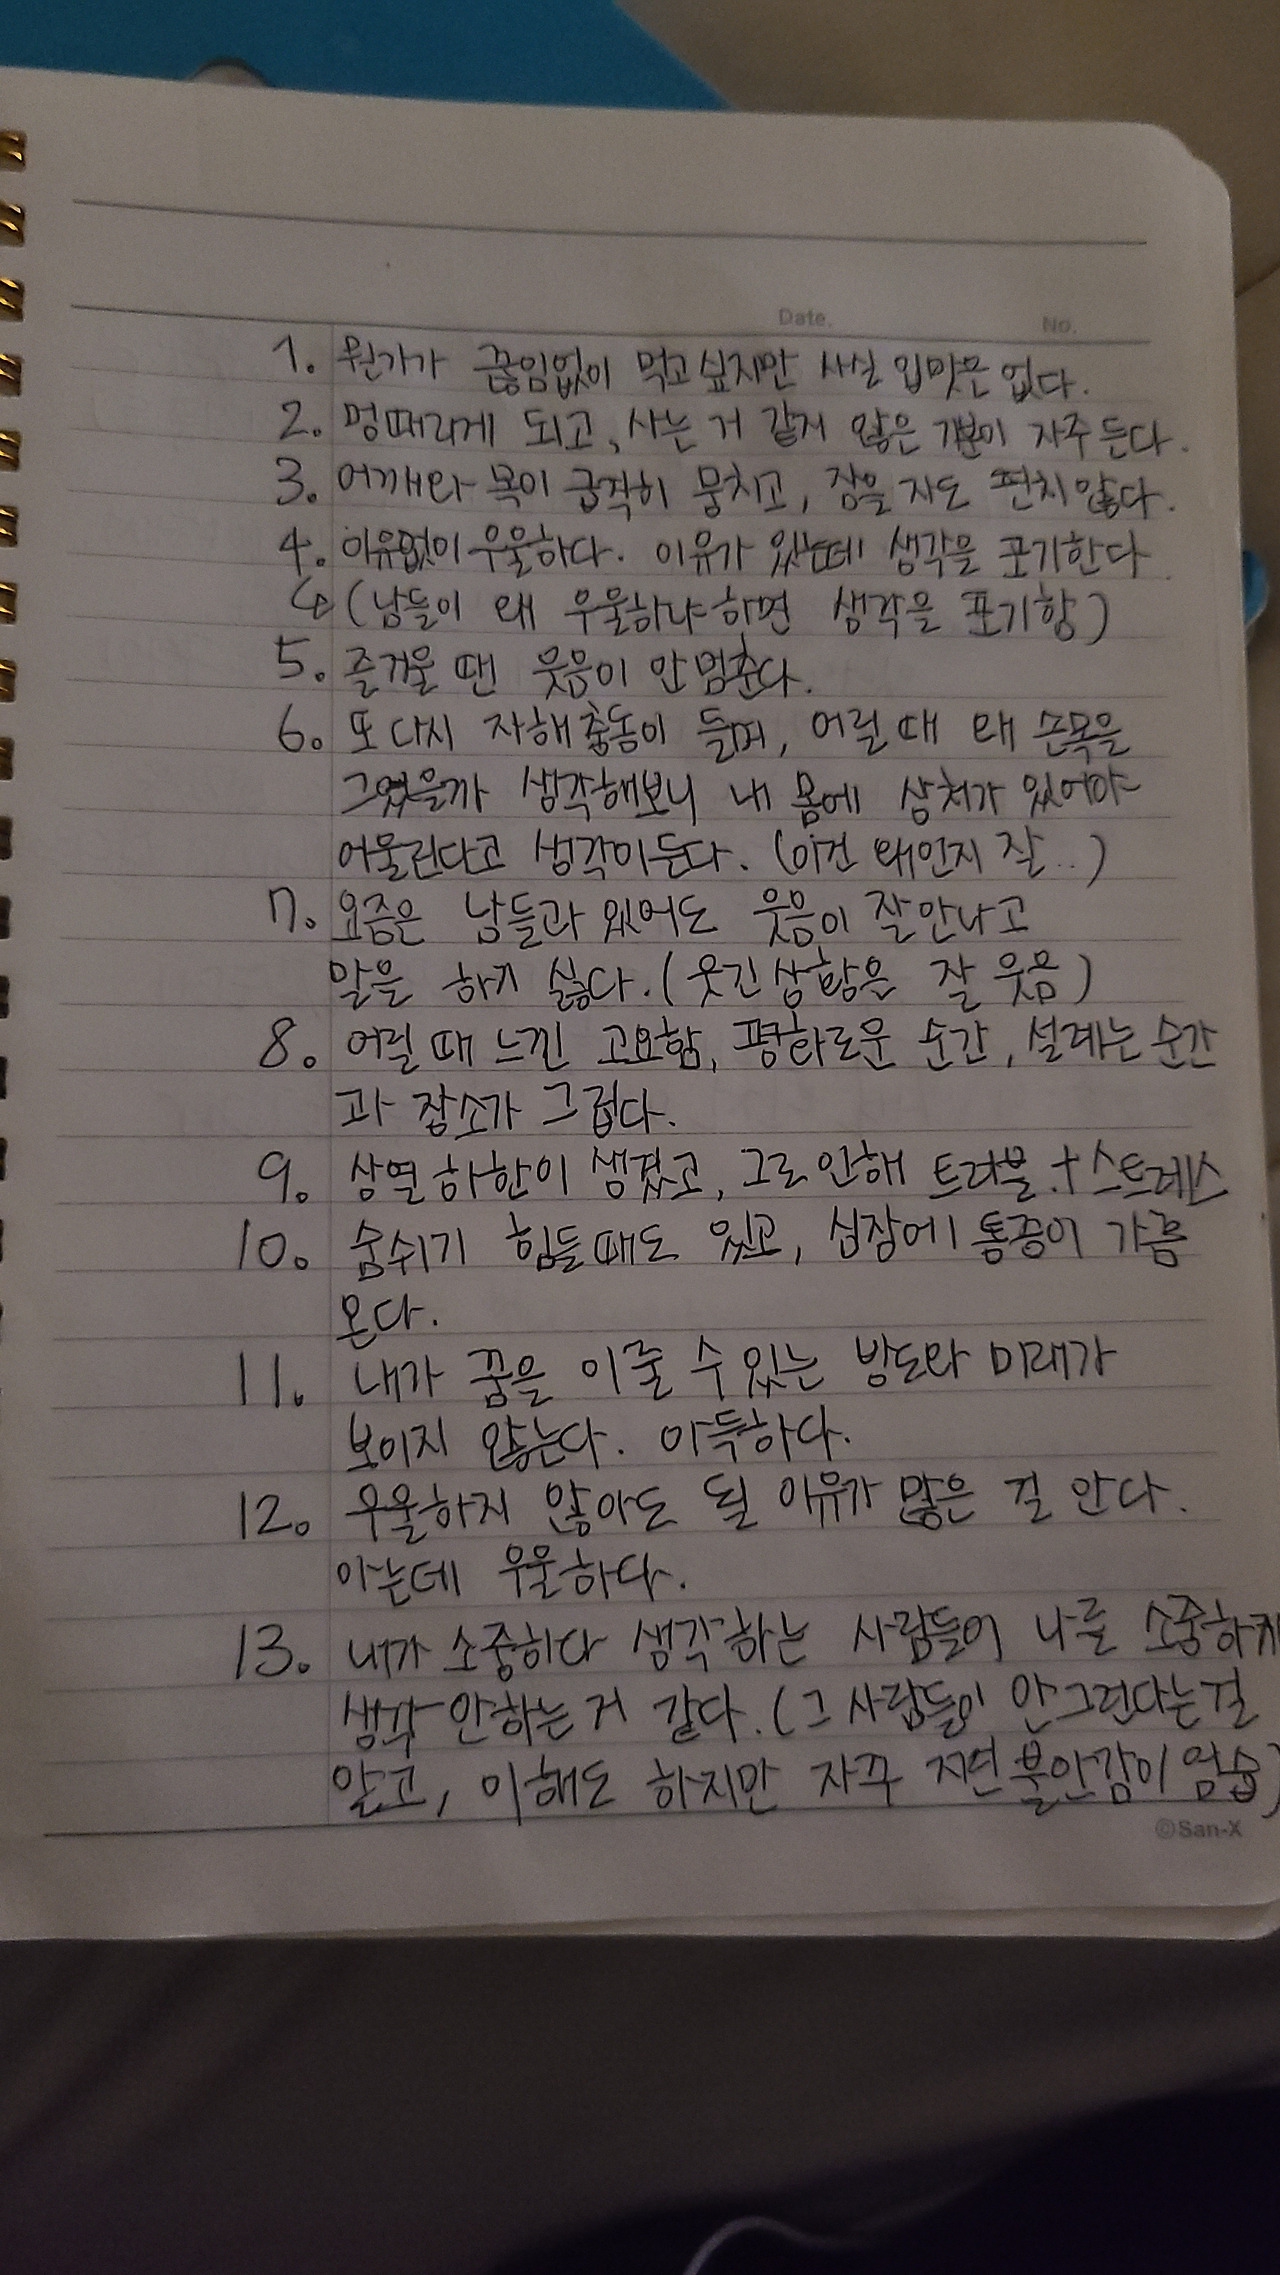 Date.
No.
1. 뭔가가 끊임없이 먹고싶지만 사실 입맛은 없다.
2. 멍때리게 되고, 사는 거 같지 않은 기분이 자주 든다.
3. 어깨와 목이 급격히 뭉치고, 잠을 자도 편치않다.
4. 이유없이 우울하다. 이유가 있는데 생각을 포기한다
(남들이 왜 우울하냐하면 생각을 포기함)
5. 즐거울 땐 웃음이 안멈춘다.
6. 또 다시 자해충동이 들며, 어릴 때 왜 손목을
그었을까 생각해보니 내 몸에 상처가 있어야
어울린다고 생각이든다. (이건 왜인지 잘..)
7. 요즘은 남들과 있어도 웃음이 잘안나고
말을 하기 싫다. (웃긴상황은 잘 웃음)
8. 어릴 때 느낀 고요함, 평화로운 순간, 설레는 순간
과 장소가 그립다.
9. 상열하한이 생겼고, 그로인해 트러블+스트레스
10. 숨쉬기 힘들때도 있고, 심장에 통증이 가끔
온다.
11. 내가 꿈을 이룰 수있는 방도와 미래가
보이지 않는다. 아득하다.
12. 우울하지 않아도 될 이유가 많은 걸 안다.
아는데 우울하다.
13. 내가 소중하다 생각하는 사람들이 나를 소중하게
생각 안하는거 같다. (그 사람들이 안그런다는걸
알고, 이해도 하지만 자꾸 지면 불안감이 엄습)
©San-X